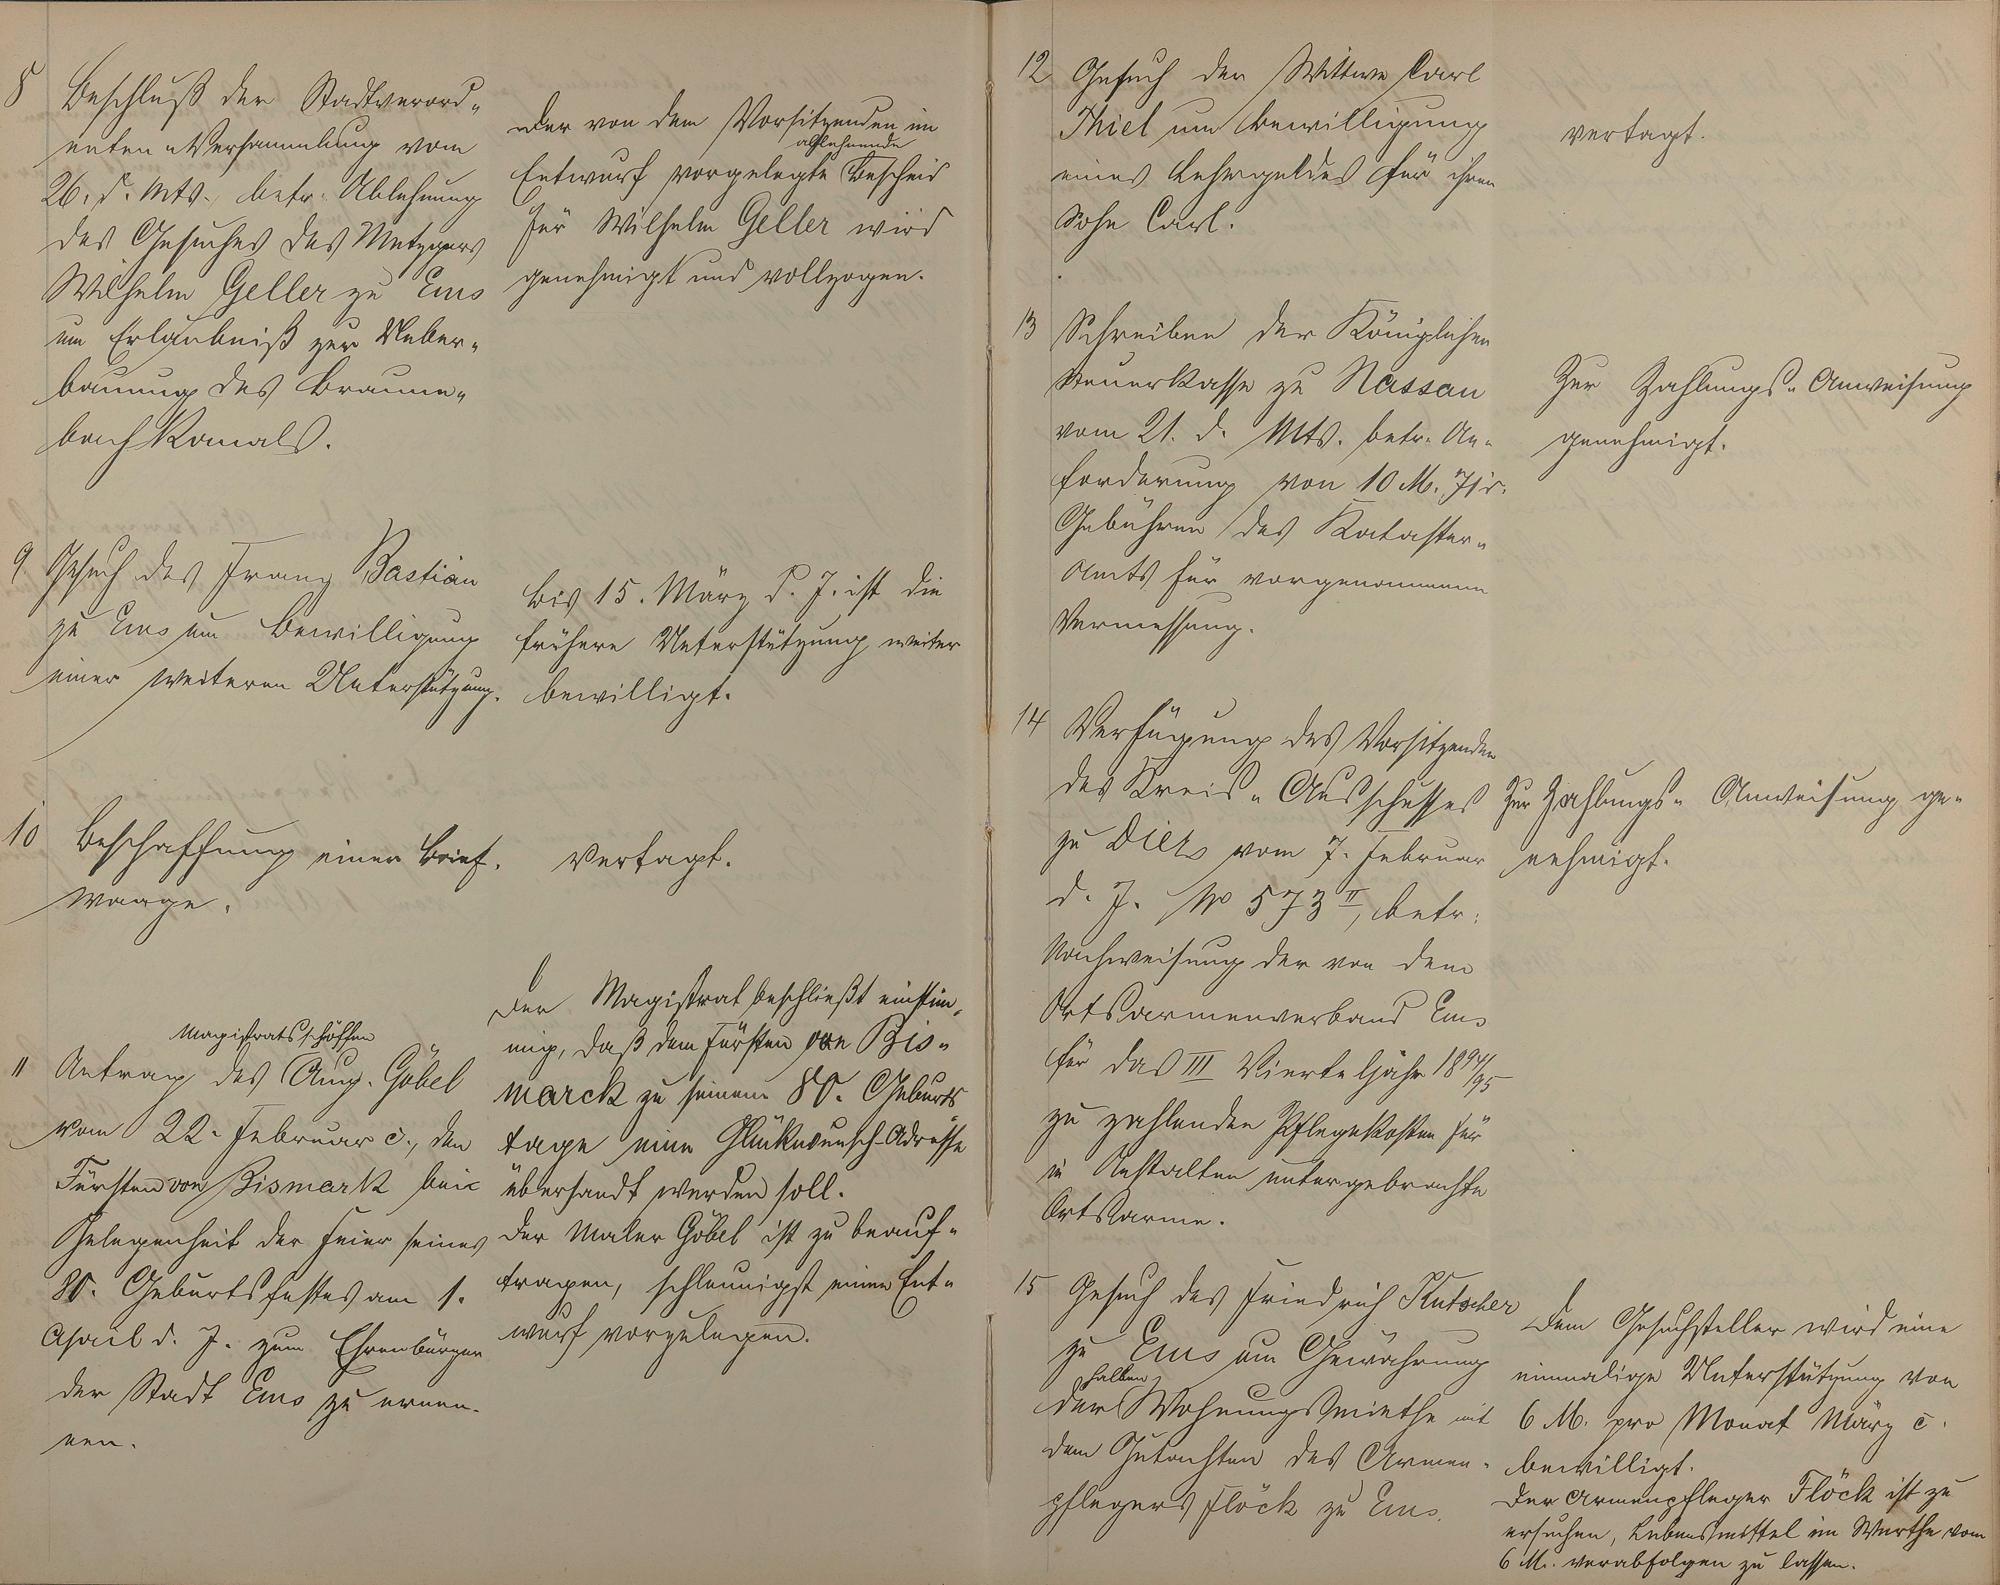 8
Beschluß der Stadtverord-
neten-Versammlung vom
26. d. Mts., betr. Ablehnung
des Gesuches des Metzgers
Wilhelm Geller zu Ems
um Erlaubniß zur Ueber-
bauung des Braune-
bach Kanals.
Der von dem Vorsitzenden im
ablehnende
Entwurf vorgelegte Bescheid
für Wilhelm Geller wird
genehmigt und vollzogen.
9
Gesuch des Franz Bastian
zu Ems um Bewilligung
einer weiteren Unterstützung.
Bis 15. März d. J. ist die
frühere Unterstützung weiter
bewilligt.
10
Beschaffung einer Brief-
waage.
Vertagt.
Magistratsschöffen
11 Antrag des Aug. Göbel
vom 22. Februar c., den
Fürsten von Bismark bei
Gelegenheit der Feier seines
80. Geburtsfestes am 1.
April d. J. zum Ehrenbürger
der Stadt Ems zu ernen-
nen.
Der Magistrat beschließt einstim-
mig, daß dem Fürsten von Bis-
marck zu seinem 80. Geburts
tage eine Glückwunsch-Adresse
übersandt werden soll.
Der Maler Göbel ist zu beauf-
tragen, schleunigst einen Ent-
wurf vorzulegen.
12 Gesuch der Wittwe Carl
Thiel um Bewilligung
eines Lehrgeldes für ihren
Sohn Carl.
vertagt.
13 Schreiben der Königlichen
Steuerkasse zu Nassau
vom 21. d. Mts. betr. An-
forderung von 10 M. 71 d.
Gebühren des Kataster-
Amts für vorgenommene
Vermessung.
Zur Zahlungs-Anweisung
genehmigt.
14 Verfügung des Vorsitzenden
des Kreis-Ausschusses
zu Diez vom 7. Februar
d. J. No 573 II, betr.
Nachweisung der von dem
Ortsarmenverband Ems
für das III Vierteljahr 1894/95
zu zahlenden Pflegekosten für
in Anstalten untergebrachte
Ortsarme.
Zur Zahlungs-Anweisung ge-
nehmigt.
15 Gesuch des Friedrich Kutscher
zu Ems um Gewährung
halben
der Wohnungsmiethe mit
dem Gutachten des Armen-
pflegers Flöck zu Ems.
Dem Gesuchsteller wird eine
einmalige Unterstützung von
6 M. pro Monat März c.
bewilligt.
Der Armenpfleger Flöck ist zu
ersuchen, Lebensmittel im Werthe vom
6 M. verabfolgen zu lassen.